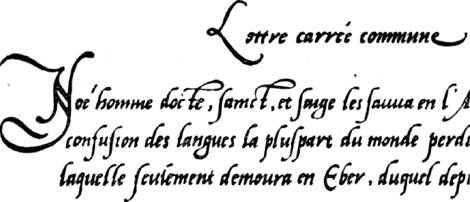 Lettre carreé commune
Noé homme docte, sainct, et sage les sauua en l'A
confusion des langues la pluspart du monde perdi
laquelle seulement demoura en Eber, duquel depi